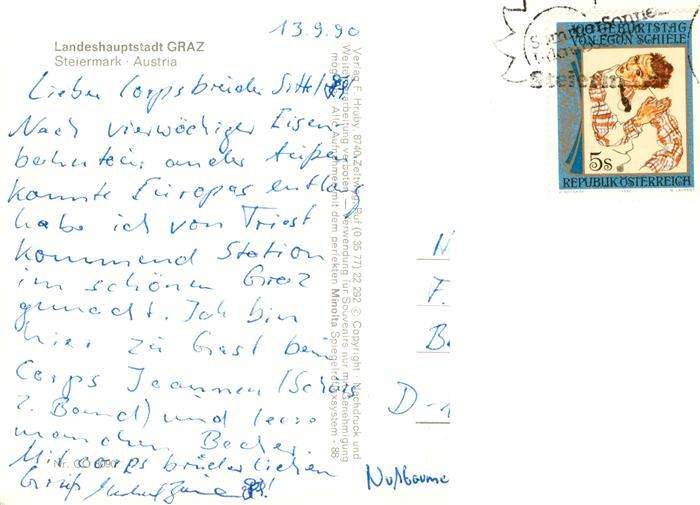 13.9.90
Landeshauptstadt GRAZ
Steiermark · Austria
Lieber Corpsbruder
Nach vierwöchiger Eisen-
bahntour an der Außen-
kannte Europas entlang
habe ich von Triest
kommend Station
im schönen Graz
gemacht. Ich bin
hier zu Gast beim
Corps Joannea
und leere
manchen Becher.
Mit corpsbrüderlichen
Gruß
Verlag F. Hruby, 8740 Zeltweg, Ruf (0 35 77) 22 292 © Copyright · Nachdruck und
Weiterverarbeitung verboten — Verwendung für Souvenirs nur mit Genehmigung
Alle Aufnahmen mit dem perfekten Minolta Spiegelreflexsystem - 88
Nr.
100. GEBURTSTAG
VON EGON SCHIELE
5s
REPUBLIK ÖSTERREICH
Sonne
F.
D-1
Nußbaume